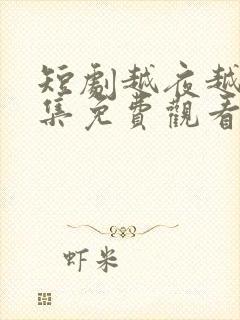 短劇越夜越
集免費觀看
虾米